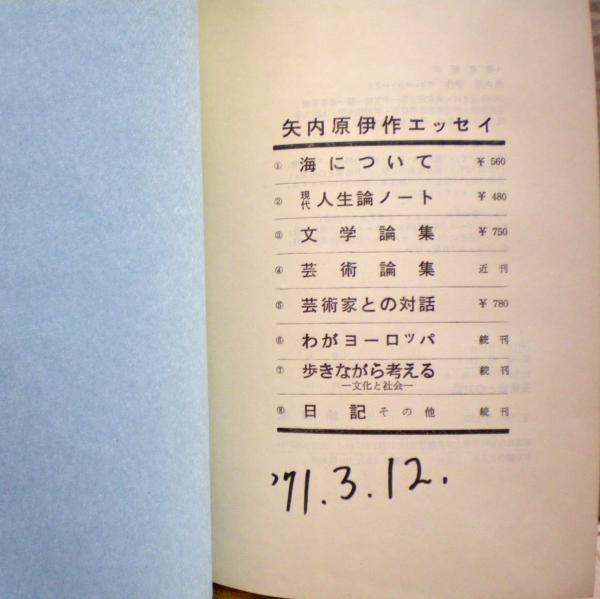 矢内原伊作エッセイ
① 海について ¥ 560
② 現代 人生論ノート ¥ 480
③ 文学論集 ¥ 750
④ 芸術論集 近刊
⑤ 芸術家との対話 ¥ 780
⑥ わがヨーロッパ 続刊
⑦ 歩きながら考える 続刊
―文化と社会―
⑧ 日記 その他 続刊
'71.3.12.